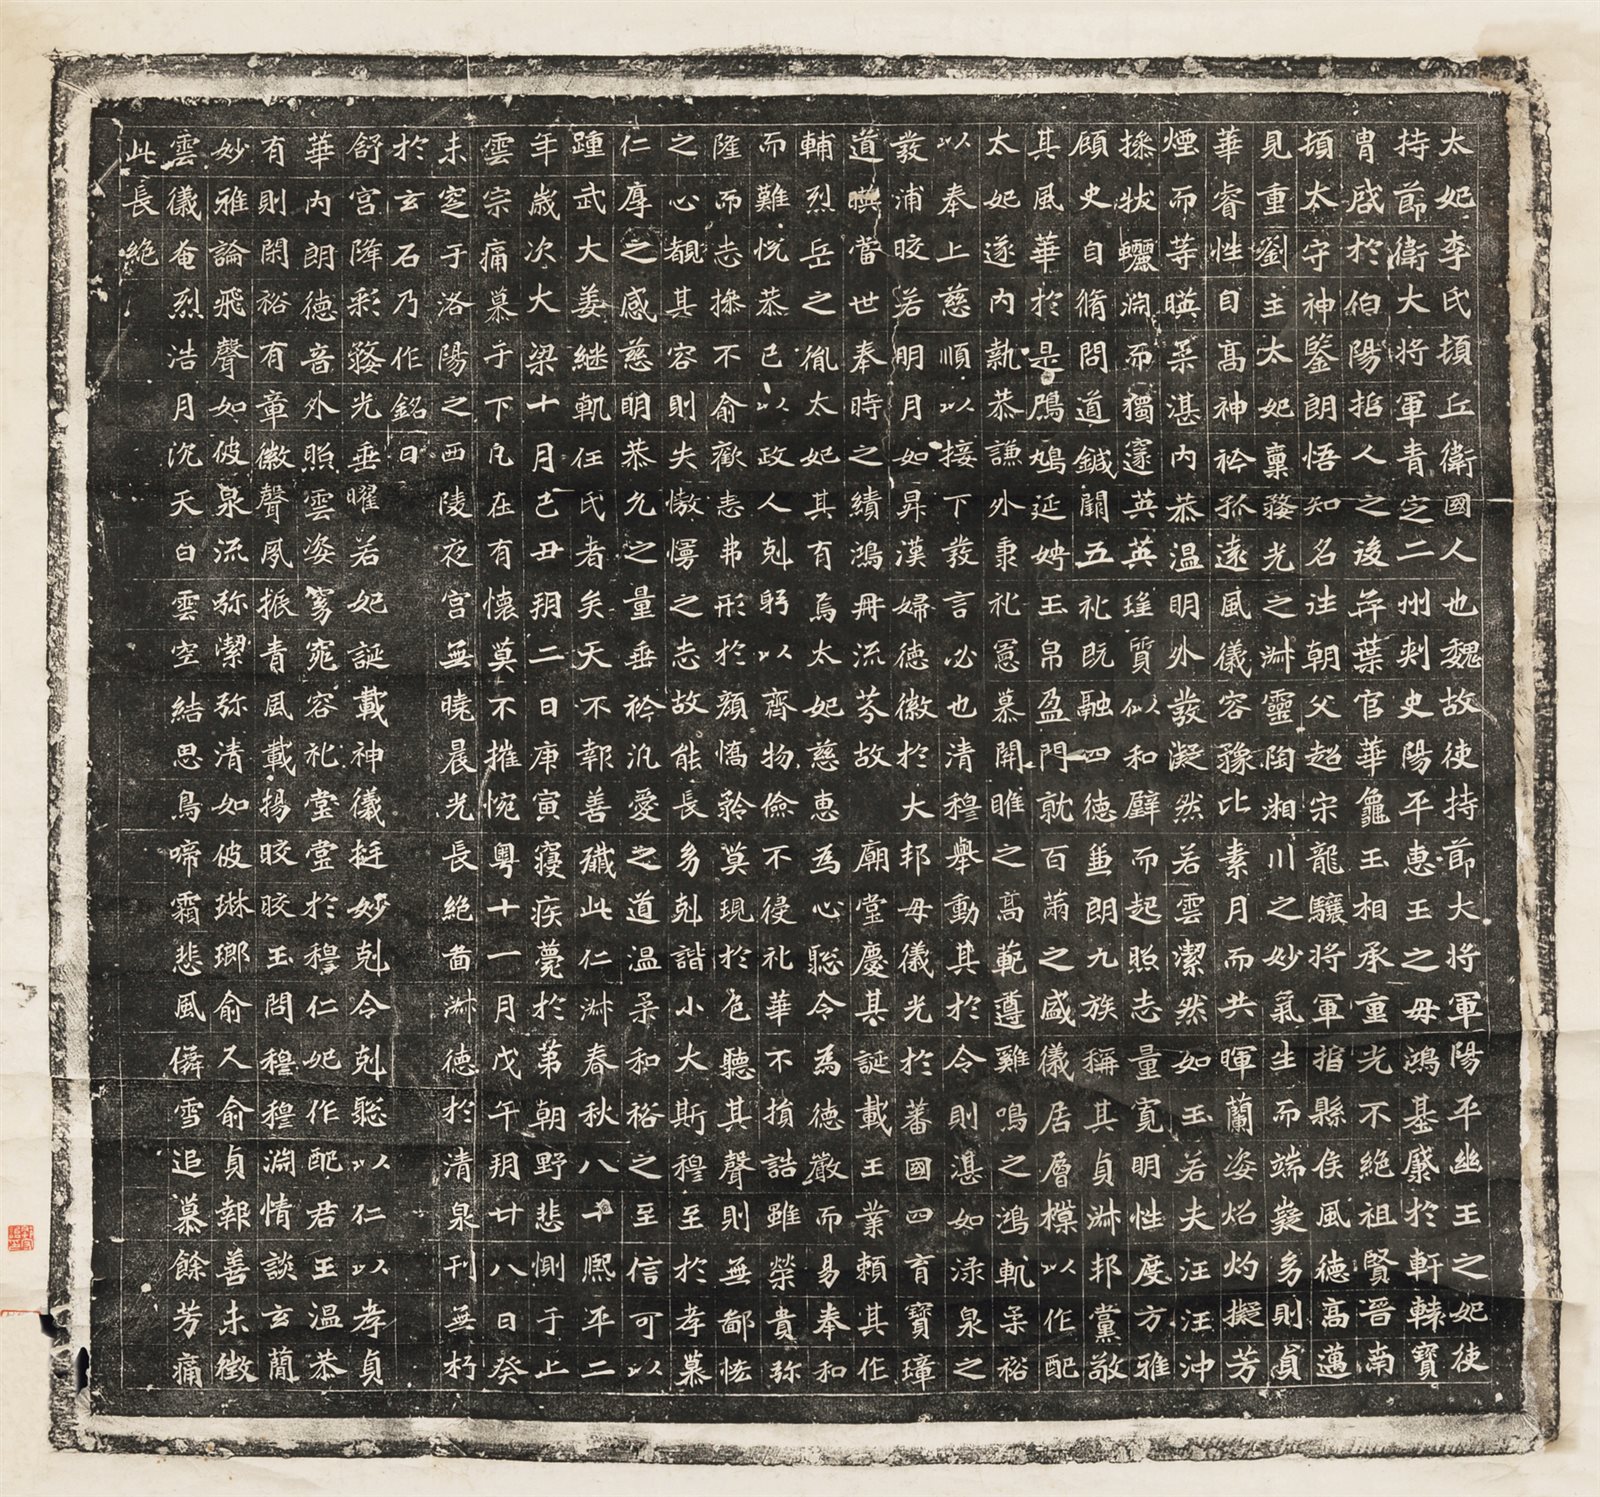 太妃李氏頓丘衛國人也魏故使持節大將軍陽平幽王之妃使
持節衛大將軍青定二州刺史陽平惠王之母鴻基感於軒轅寶
胄啓於伯陽㧞人之後并葉官華龜玉相承重光不絕祖賢晉南
頓太守神鑒朗悟知名往朝父超宋龍驤將軍㧞縣侯風德高邁
見重劉主太妃稟婺光之淋靈陶湘川之妙氣生而端嶷多則貞
華睿性自高神衿孤遠風儀容豫比素月而共暉蘭姿焰灼擬芳
煙而等暎柔湛內恭温明外發凝然若雲潔然如玉若夫汪汪沖
操狀蠷淵而獨邃英英瑤質似和璧而起照志量寬明性度方雅
顧史自脩問道鍼闚五礼既融四德兼朗九族稱其貞淋邦黨敬
其風華於是鳲鳩延娉玉帛盈門就百兩之盛儀居層樸以作配
太妃遂內執恭謙外秉礼憲慕關雎之高範遵雞鳴之鴻軌柔裕
以奉上慈順以接下發言必也清穆舉動其於令則湛如淥泉之
發浦皎若明月如昇漢婦德徽於大邦母儀光於蕃國四育寶璋
道暎當世奉時之績鴻冊流芬故廟堂慶其誕載王業賴其作
輔烈岳之胤太妃其有焉太妃慈惠為心聡令為德嚴而易奉和
而難悅恭己以政人剋躬以齊物儉不侵礼華不損誥雖榮貴弥
隆而志操不俞歡恚弗形於顏憍矜莫現於色聽其聲則無鄙恡
之心覩其容則失慠慢之志故能長多剋諧小大斯穆至於孝慕
仁厚之感慈明恭允之量垂衿汎愛之道温柔和裕之至信可以
踵武大姜継軌任氏者矣天不報善殱此仁淋春秋八十熙平二
年歲次大梁十月己丑玥二日庚寅寢疾薨於第朝野悲惻于止
雲宗痛慕于下凡在有懷莫不摧惋粵十一月戊午玥廿八日癸
未窆于洛陽之西陵夜宮無曉晨光長絕啚淋德於清泉刊無朽
於玄石乃作銘曰
舒宮降彩婺光垂曜若妃誕載神儀挺妙剋令剋聡以仁以孝貞
華內朗德音外照雲姿窈窕容礼堂堂於穆仁妃作配君王温恭
有則閑裕有章徽聲夙振青風載揚皎皎玉問穆穆淵情談玄蕳
妙雅論飛聲如彼泉流弥潔弥清如彼琳瑯俞久俞貞報善未徵
雲儀奄烈浩月沉天白雲空結思鳥啼霜悲風僯雪追慕餘芳痛
此長絕